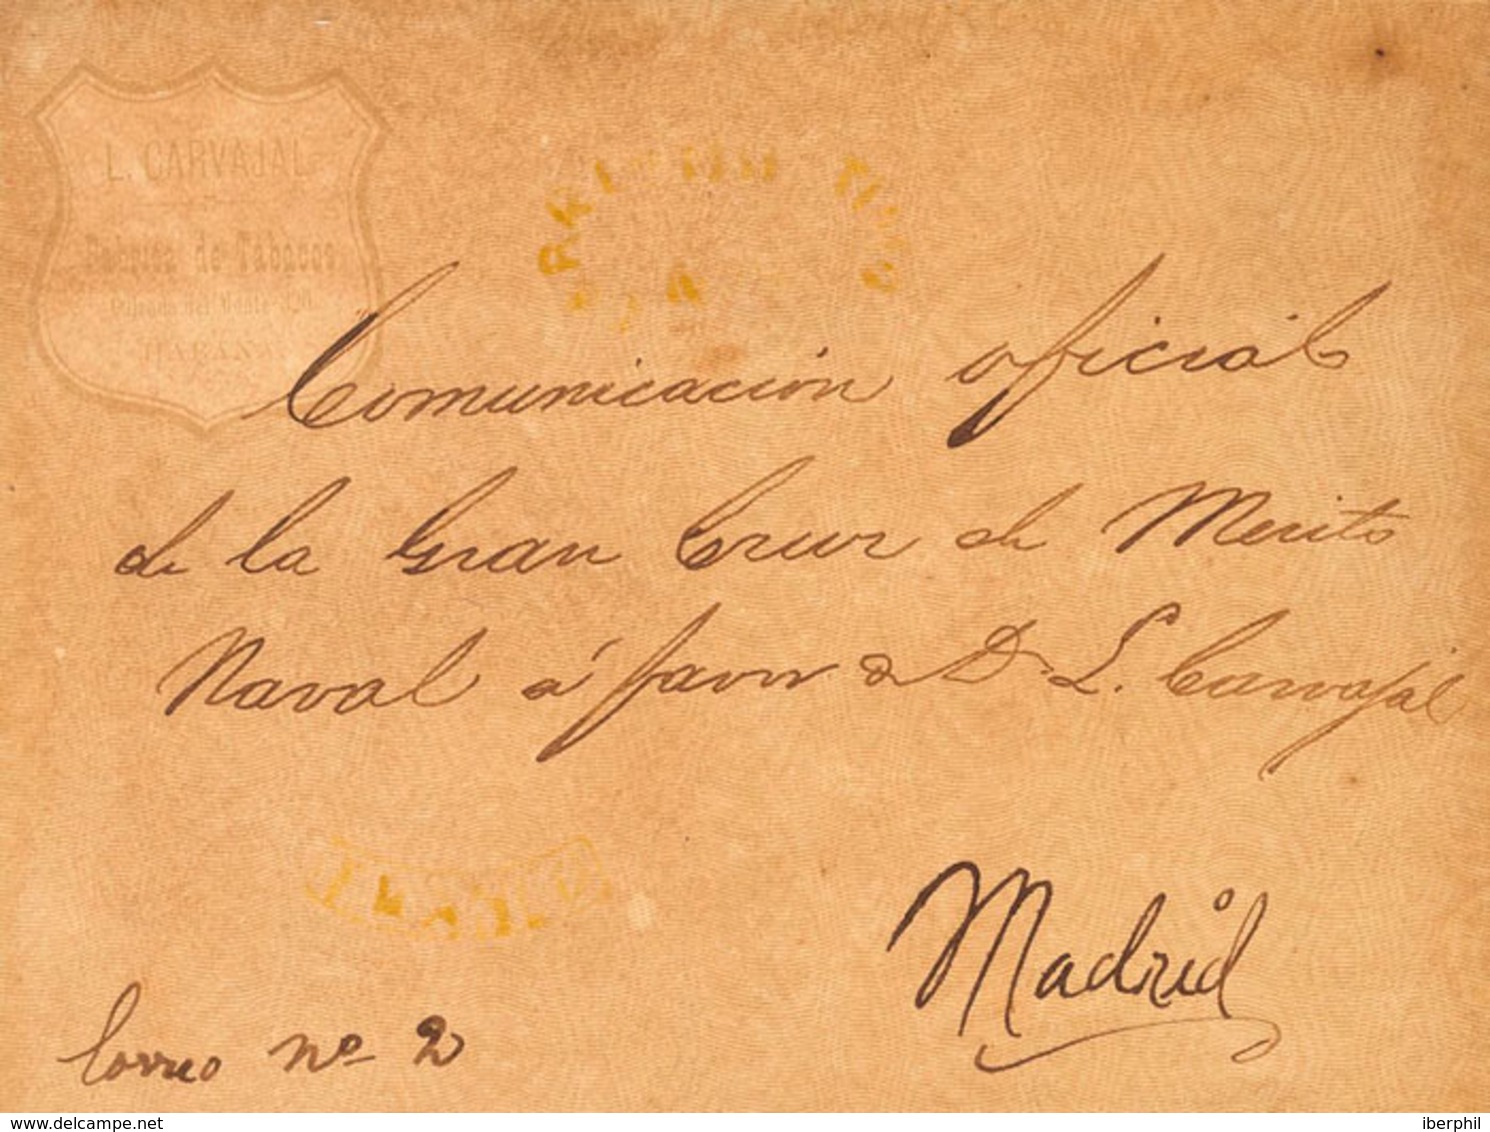 L. CARVAJAL
Fábrica de Tabacos
Calzada del Monte
HABANA
Comunicación oficial
de la Gran Cruz de Merito
Naval á favor de D. L. Carvajal
Madrid
Correo nº 2
delcampe.net
iberphil